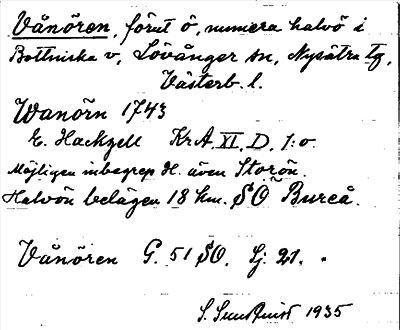 Vånören, förut ö, numera halvö i
Bottniska v, Lövånger sn, Nysätra tg,
Västerb. l.
Wanörn 1743
E. Hackzell KrA XI. D. 1:o
Möjligen inbegrep H. även Storön.
Halvön belägen 18 km. SO Bureå.
Vånören G. 51 SO. Lj. 21.
S. Sundqvist 1935